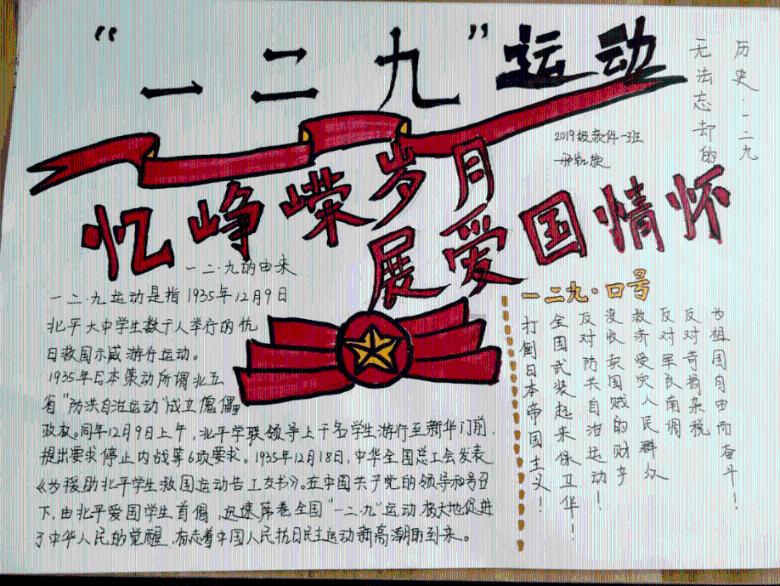 “一二九”运动
历史·一二九
无法忘却的
2019级软件一班
忆峥嵘岁月
展爱国情怀
一二·九的由来
一二·九运动是指1935年12月9日
北平大中学生数千人举行的抗
日救国示威游行运动。
1935年日本策动所谓北五
省“防共自治运动”成立傀儡
政权。同年12月9日上午,北平学联领导上千名学生游行至新华门前,
提出要求停止内战等6项要求。1935年12月18日,中华全国总工会发表
《为援助北平学生救国运动告工友书》。在中国共产党的领导和号召
下,由北平爱国学生首倡,迅速席卷全国“一二·九”运动极大地促进
了中华人民的觉醒,标志着中国人民抗日民主运动新高潮的到来。
一二九·口号
为祖国自由而奋斗!
反对苛捐杂税
反对军队南调
救济受灾人民群众
没收卖国贼的财产
反对防共自治运动!
全国武装起来保卫华!
打倒日本帝国主义!